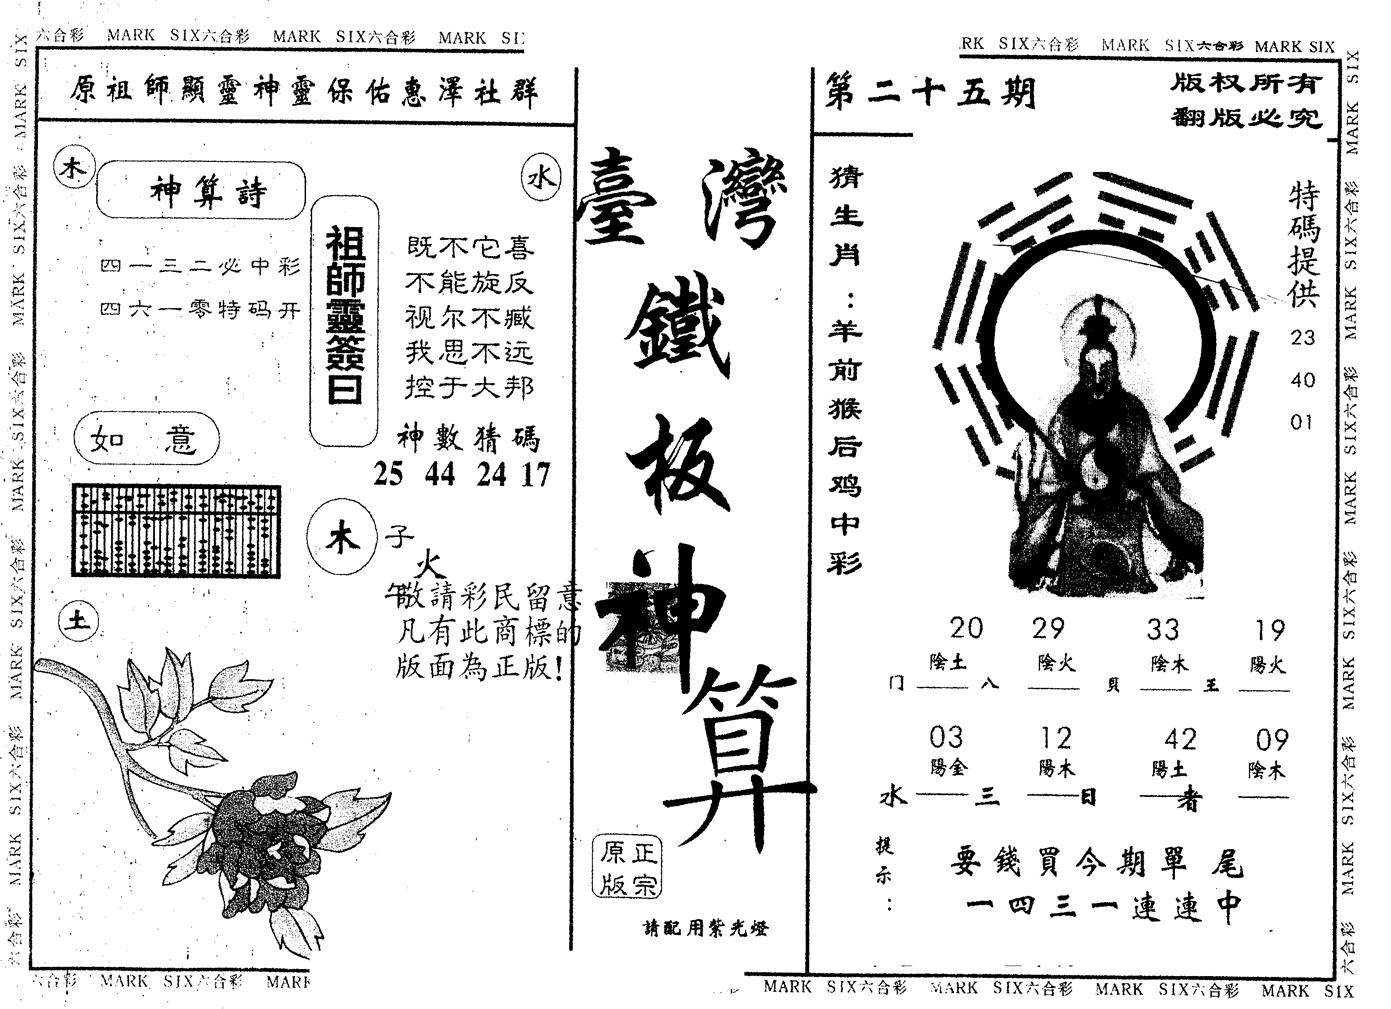 六合彩 MARK SIX六合彩 MARK SIX六合彩 MARK SI
RK SIX六合彩 MARK SIX六合彩 MARK SIX
原祖師顯靈神靈保佑惠澤社群
木
神算詩
四一三二必中彩
四六一零特码开
水
祖師靈簽曰
既不它喜
不能旋反
视尔不臧
我思不远
控于大邦
神數猜碼
25 44 24 17
如意
木
子
火
午
敬請彩民留意
凡有此商標的
版面為正版!
土
臺灣
鐵
板
神
算
正宗
原版
請配用紫光燈
第二十五期
版权所有
翻版必究
猜生肖:羊前猴后鸡中彩
特碼提供
23
40
01
20 29 33 19
陰土 陰火 陰木 陽火
门 八 貝 王
03 12 42 09
陽金 陽木 陽土 陰木
水 三 日 者
提示:
要錢買今期單尾
一四三一連連中
六合彩 MARK SIX六合彩 MARK
MARK SIX六合彩 MARK SIX六合彩 MARK SIX六合彩 MARK SIX
MARK SIX六合彩 MARK SIX六合彩 MARK SIX六合彩 MARK SIX六合彩 MARK SIX六合彩
MARK SIX六合彩 MARK SIX六合彩 MARK SIX六合彩 MARK SIX六合彩 MARK SIX